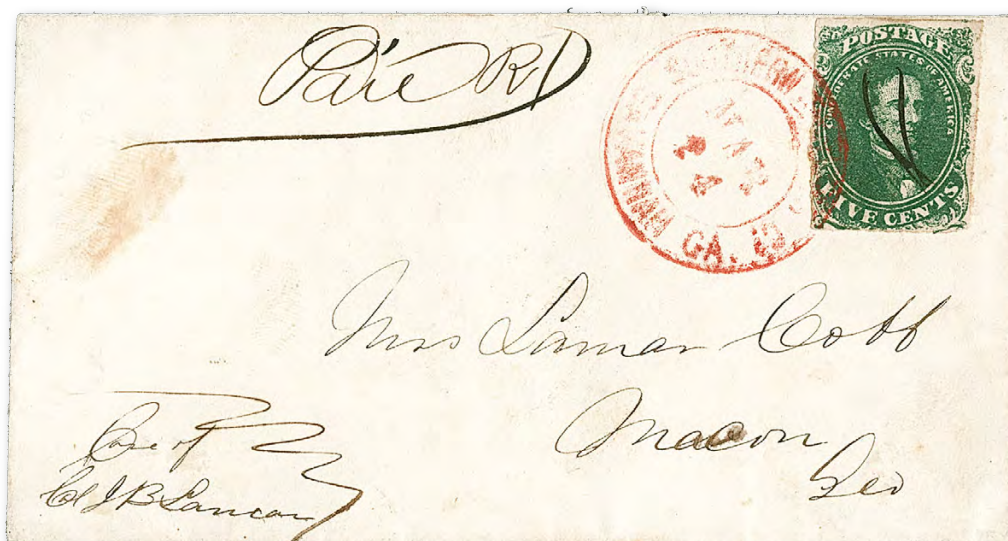 Paid
POSTAGE
CONFEDERATE STATES OF AMERICA
FIVE CENTS
SOUTHERN
SAVANNAH GA.
24
Mrs Lamar Cobb
Macon
Geo
Care of
Col J B Lamar